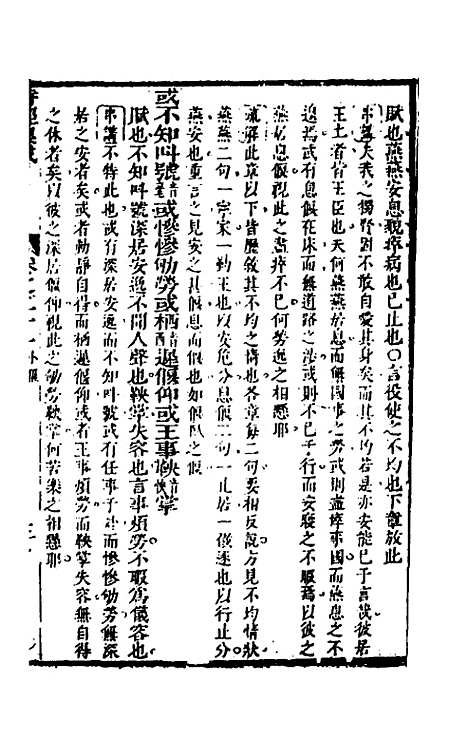 賦也燕燕安息貌瘁病也已止也○言役使之不均也下章放此
串講夫我之獨賢固不敢自愛其身矣而其不均若是亦安能已于言哉彼居
王土者皆王臣也夫何燕燕居息而無國事之勞或則盡瘁事國而燕息之不
遑焉或有息偃在床而無道路之涉或則不已于行而安寢之不暇焉以彼之
燕居息偃視此之盡瘁不已何勞逸之相懸耶
疏解此章以下皆歷敘其不均之情也各章每二句要相反說方見不均情狀
燕燕二句一寧家一勤王也以安危分息偃二句一止居一復迷也以行止分
燕安也重言之見安之甚偃息而偃也如偃臥之偃
或不知叫號或慘慘劬勞或栖遲偃仰或王事鞅掌
賦也不知叫號深居安逸不聞人聲也鞅掌失容也言事煩勞不暇為儀容也
串講不特此也或有深居安逸而不知叫號或有任事于外而慘慘劬勞無深
居之安者矣或者動靜自得而栖遲偃仰或者王事煩勞而鞅掌失容無自得
之休者矣以彼之深居偃仰視此之劬勞鞅掌何苦樂之相懸耶